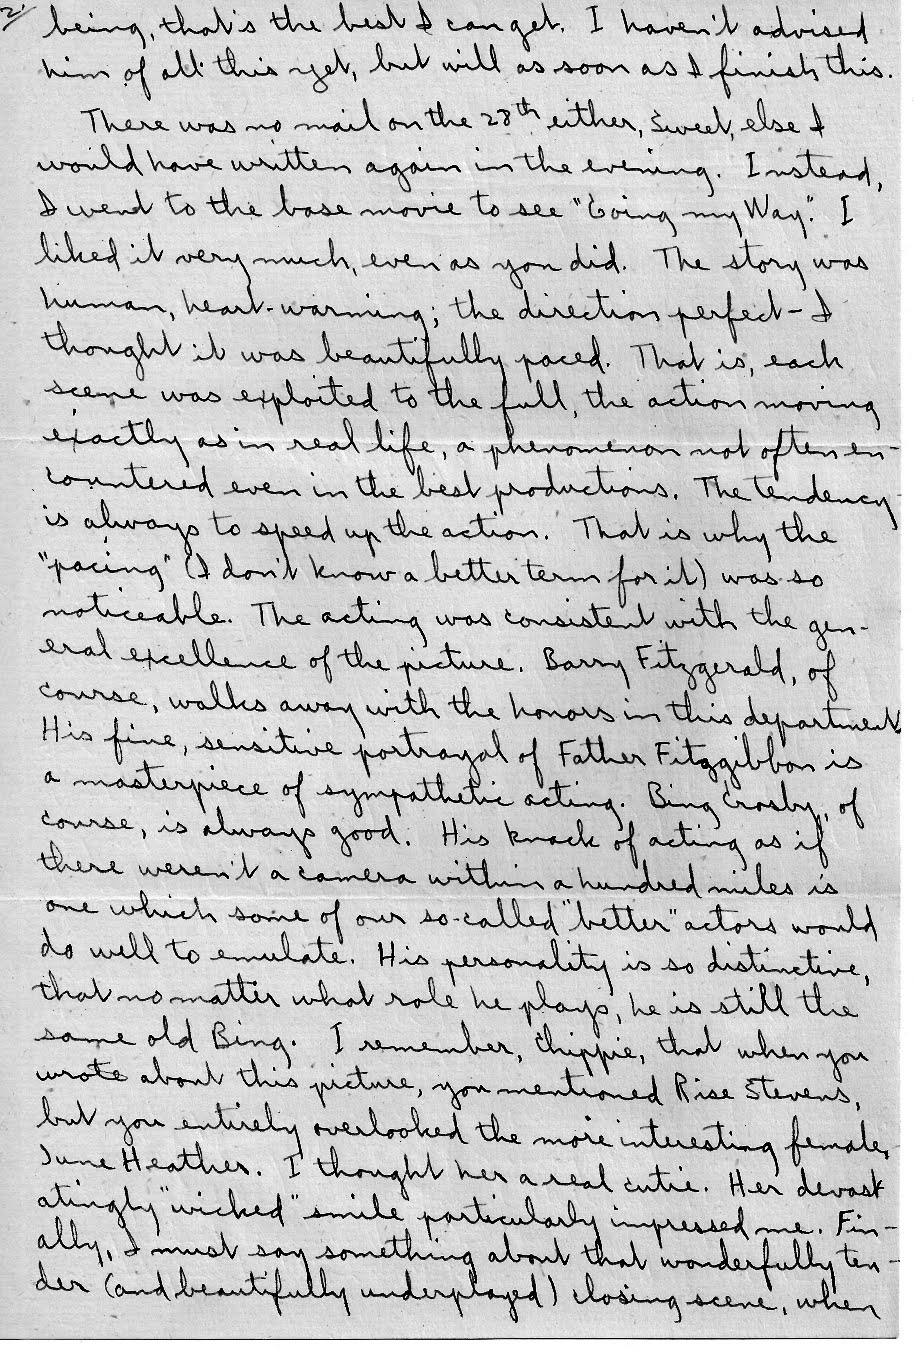 2/
being, that's the best I can get. I haven't advised
him of all this yet, but will as soon as I finish this.
There was no mail on the 28th either, Sweet, else I
would have written again in the evening. Instead,
I went to the base movie to see "Going my Way". I
liked it very much, even as you did. The story was
human, heart-warming; the direction perfect - I
thought it was beautifully paced. That is, each
scene was exploited to the full, the action moving
exactly as in real life, a phenomenon not often en-
countered even in the best productions. The tendency
is always to speed up the action. That is why the
"pacing" (I don't know a better term for it) was so
noticeable. The acting was consistent with the gen-
eral excellence of the picture. Barry Fitzgerald, of
course, walks away with the honors in this department.
His fine, sensitive portrayal of Father Fitzgibbon is
a masterpiece of sympathetic acting. Bing Crosby, of
course, is always good. His knack of acting as if
there weren't a camera within a hundred miles is
one which some of our so-called "better" actors would
do well to emulate. His personality is so distinctive,
that no matter what role he plays, he is still the
same old Bing. I remember, Chippie, that when you
wrote about this picture, you mentioned Rise Stevens,
but you entirely overlooked the more interesting female,
June Heather. I thought her a real cutie. Her devast
atingly "wicked" smile particularly impressed me. Fin-
ally, I must say something about that wonderfully ten-
der (and beautifully underplayed) closing scene, when